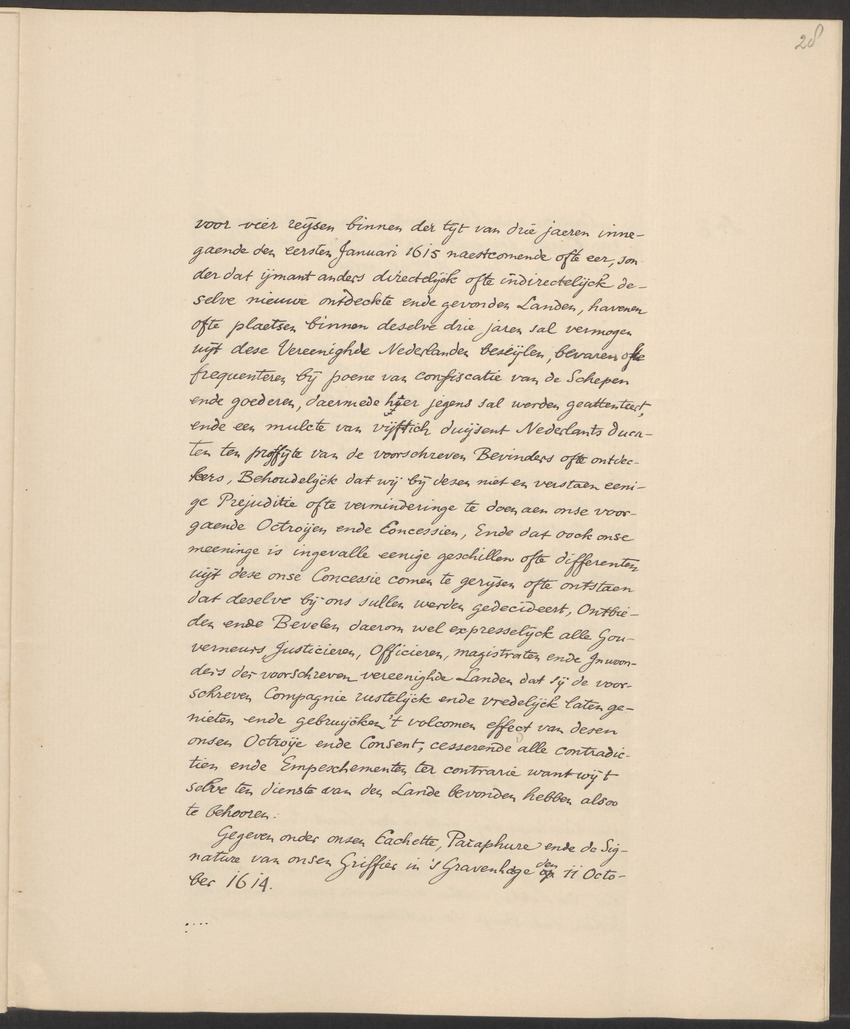 28
voor vier reijsen binnen der tijt van drie jaeren inne-
gaende den eersten Januari 1615 naestcomende ofte eer, son
der dat ijmant anders directelijck ofte indirectelijck de-
selve nieuwe ontdeckte ende gevonden Landen, havenen
ofte plaetsen binnen deselve drie jaren sal vermogen
uijt dese Vereenighde Nederlanden beseijlen, bevaren ofte
frequenteren bij poene van confiscatie van de Schepen
ende goederen, daermede hier jegens sal werden geattenteert,
ende een mulcte van vijftich duijsent Nederlants duca-
ten ten proffijte van de voorschreven Bevinders ofte ontdec-
kers, Behoudelijck dat wij bij desen niet en verstaen eeni-
ge Prejuditie ofte verminderinge te doen aen onse voor-
gaende Octroijen ende Concessien, Ende dat oock onse
meeninge is ingevalle eenige geschillen ofte differenten
uijt dese onse Concessie comen te gerijsen ofte ontstaen
dat deselve bij ons sullen werden gedecideert, Ontbie-
den ende Bevelen daerom wel expresselijck alle Gou-
verneurs, Justicieren, Officieren, magistraten ende Inwoon-
ders der voorschreven vereenighde Landen dat sij de voor-
schreven Compagnie rustelijck ende vredelijck laten ge-
nieten ende gebruijcken 't volcomen effect van desen
onsen Octroije ende Consent, cesserende alle contradic-
tien ende Empeschementen ter contrarie want wij t
selve ten dienste van den Lande bevonden hebben alsoo
te behooren.
Gegeven onder onsen Cachette, Paraphure ende de Sig-
nature van onsen Griffier in 's Gravenhage den 11 Octo-
ber 1614.
....